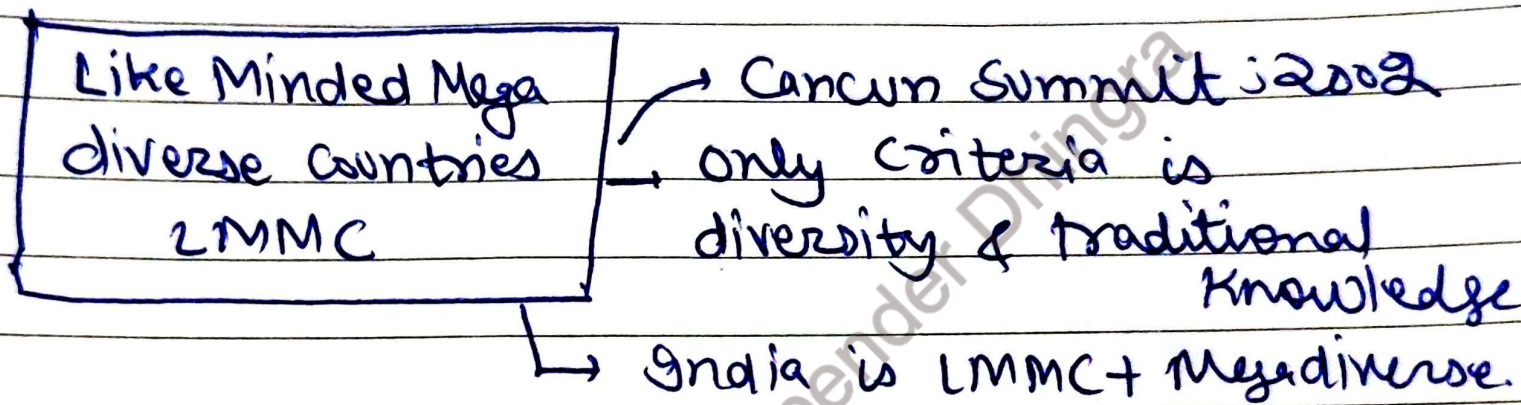 Like Minded Mega
diverse Countries
LMMC
→ Cancun Summit ; 2002
→ only Criteria is
diversity & traditional
Knowledge
→ India is LMMC + Megadiverse.
ender Dhingra